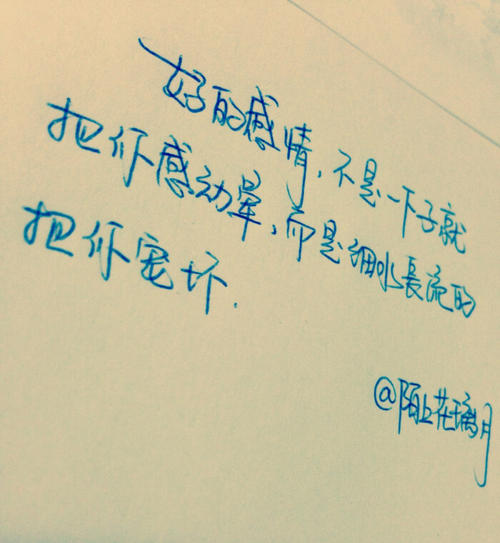 好的感情,不是一下子就
把你感动晕,而是细水长流的
把你宠坏.
@陌上花璃月